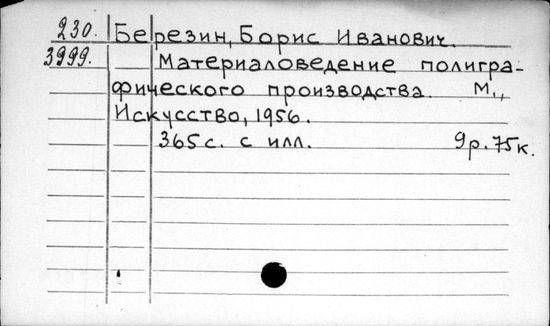 230. Березин, Борис Иванович.
3999. Материаловедение полигра-
фического производства. М.,
Искусство, 1956.
365 с. с илл. 9р. 75к.